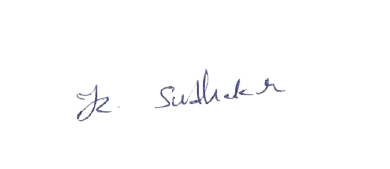 K. Sudhakar